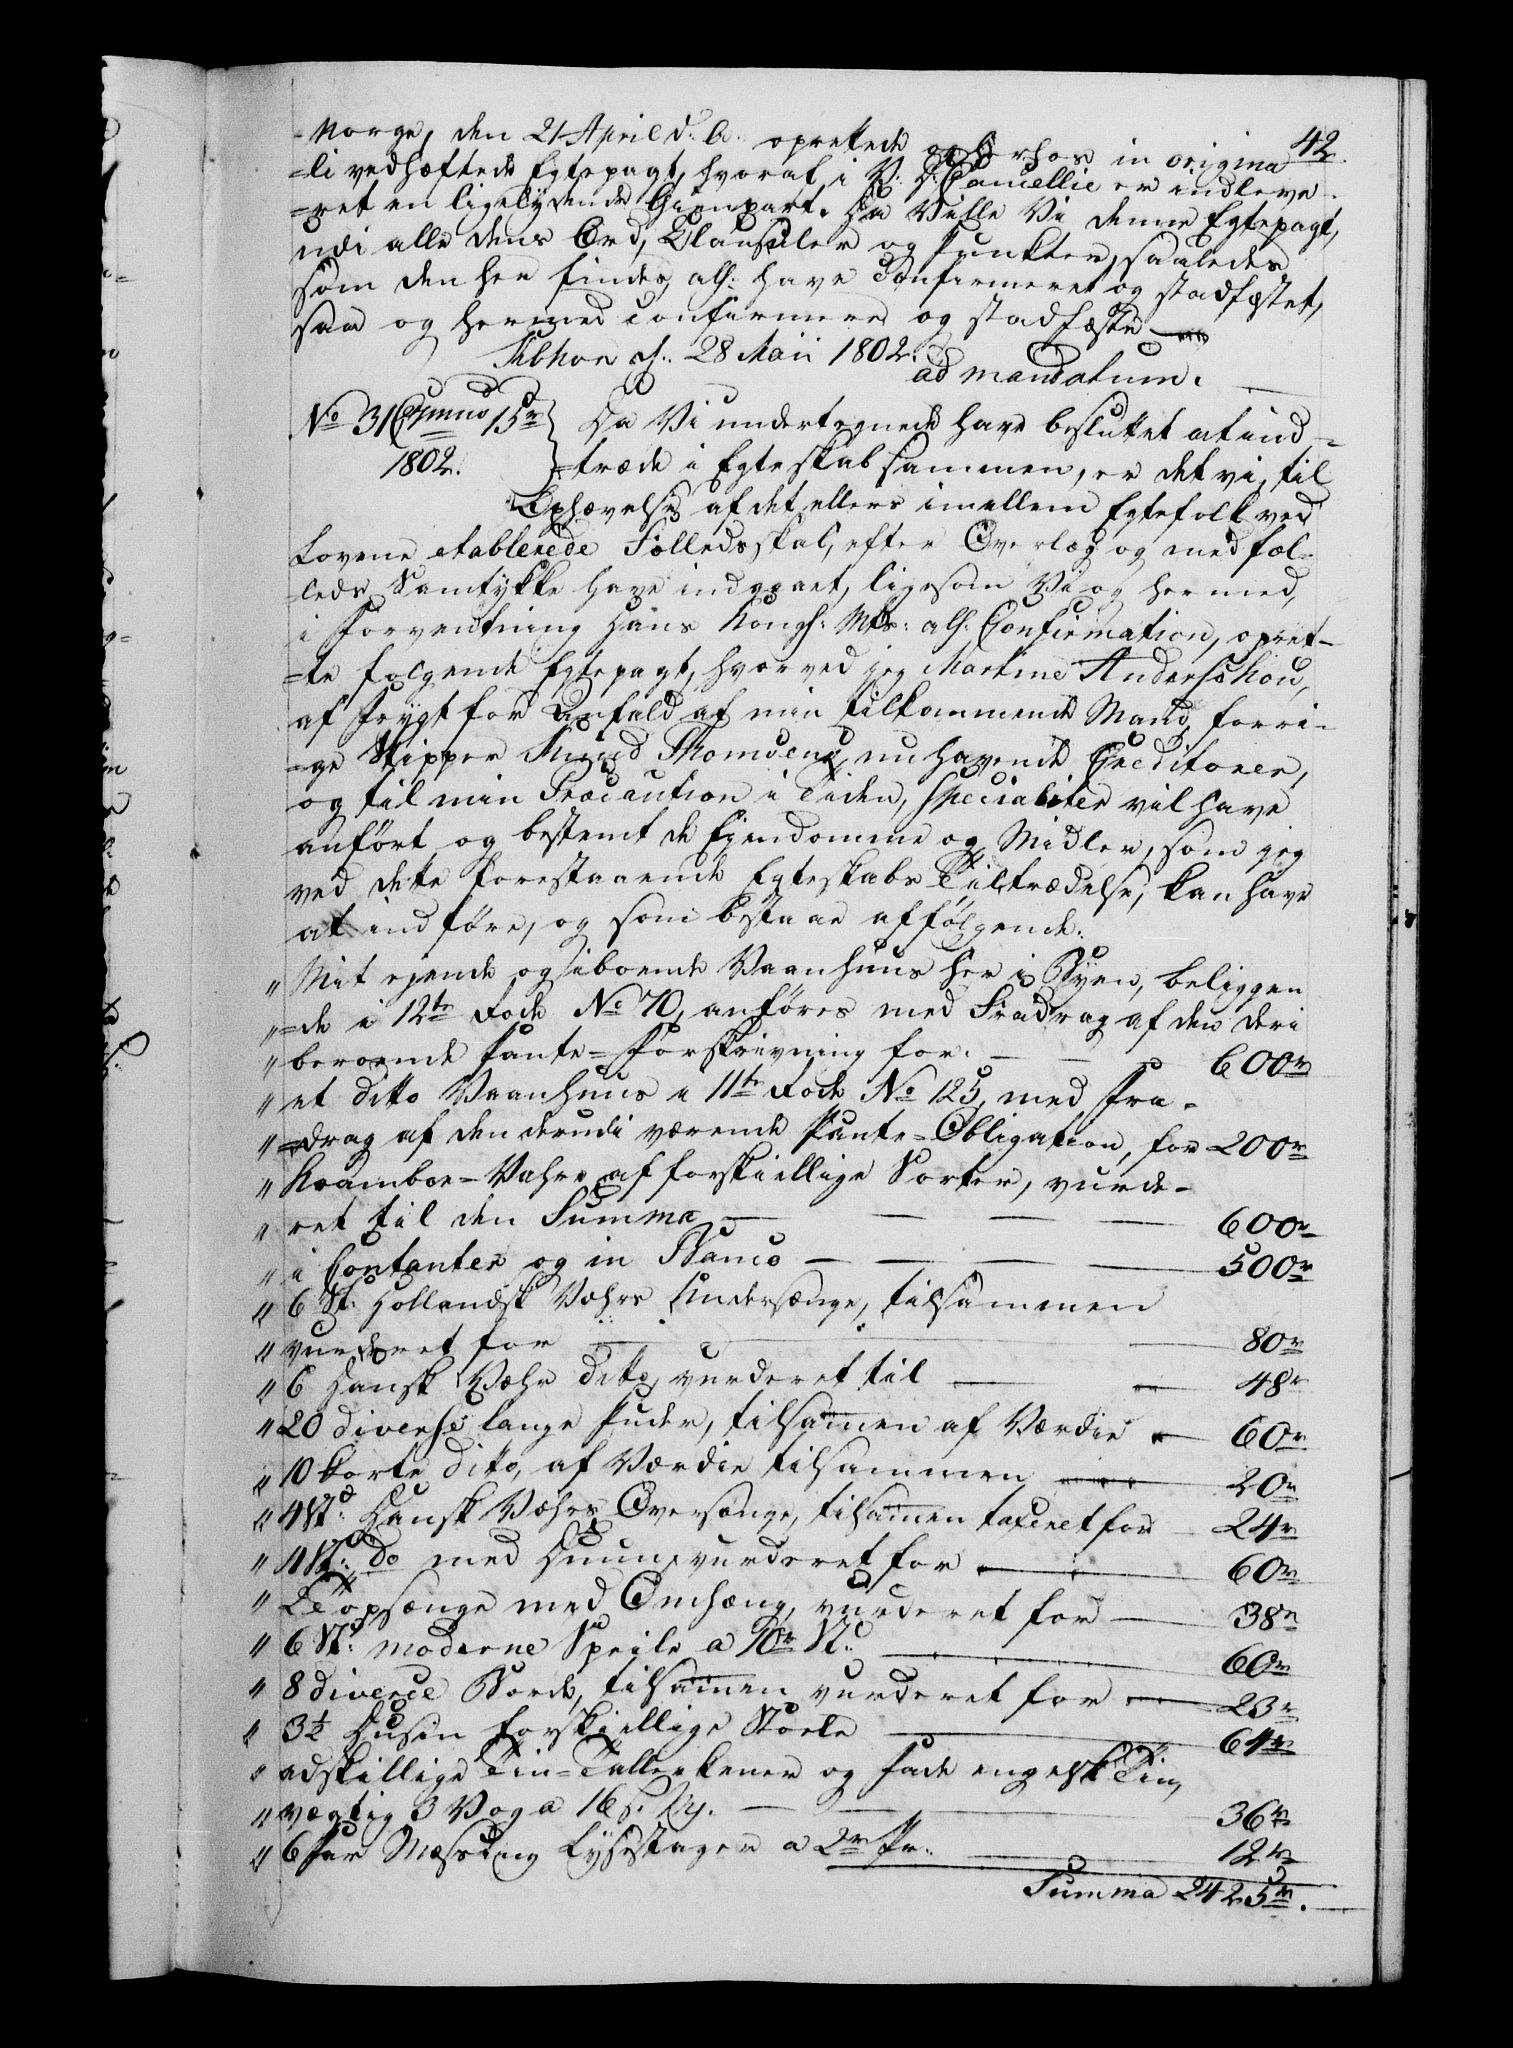 42.
Norge, den 21 April d: A: oprettede og herhos in origina
=li vedhæftede Egtepagt, hvoraf i V: D: Cancellie er indleve
=ret en ligelydende Gienpart. Da Ville Vi denne Egtepagt,
udi alle dens Ord, Clausuler og Punkter, saaledes
som den her findes, alf: have Confirmeret og stadfæstet,
saa og hermed confirmere og stadfæste
Kbhvn d: 28 Maii 1802.
ad mandatum.
No 31 15r
1802.
Da Vi undertegnede have besluttet at ind=
=træde i Egteskab sammen, er det vi, til
Ophævelse af det ellers imellem Egtefolk ved
Lovene etablerede Fælledsskab, efter Overlæg og med fæl=
=leds Samtykke have indgaaet, ligesom Vi og hermed,
i Forventning Hans Kongl: Mts: alf: Confirmation, opret=
=te følgende Egtepagt, hvorved jeg Martine Anderskou,
af Frygt for Anfald af min tilkommende Mand, forri=
=ge Skipper Knud Thomsens, nu havende Creditorer,
og til min Præcaution i Tiden, specialiter vil have
anført og bestemt de Ejendomme og Midler, som jeg
ved dette forestaaende Egteskabs Tiltrædelse, kan have
at indføre, og som bestaar af følgende:
" Mit ejende og iboende Vaanhuus her i Byen, beliggen
" =de i 12te Rode No 70, anføres med Fradrag af den deri
" beroende Pante=Forskrivning for. 600r
" et ditto Vaanhuus i 11te Rode No 125, med Fra=
" =drag af den derudi værende Pante=Obligation, for 200r
" Kramboe=Vahre af forskiellige Sorter, vurde=
" ret til den Summa 600r
" i Contanter og in Banco 500r
" 6 St: Hollandsk Vahrs Undersænge, tilsammen
" vurderet for 80r
" 6 Dansk Vahr ditto, vurderet til 48r
" 20 diverse lange Puder, tilsamen af Værdie 60r
" 10 korte dito, af Værdie tilsammen 20r
" 4 St: Dansk Vahrs Oversænge, tilsamen taxeret for 24r
" 4 St: do med Duun, vurderet for 60r
" 2 Topsænge med Omhæng, vurderet for 38r
" 6 St: moderne Speile a 10r St: 60r
" 8 diverce Borde, tilsamen vurderet for 23r
" 3½ Dusin forskiellige Stoele 64r
" adskillige Tin=Tallerkener og Fade engelsk Tin,
" vægtig 3 Vog a 16 36r
" 6 Par Messing Lysestager a 2r Pr: 12r
Summa 2425r.